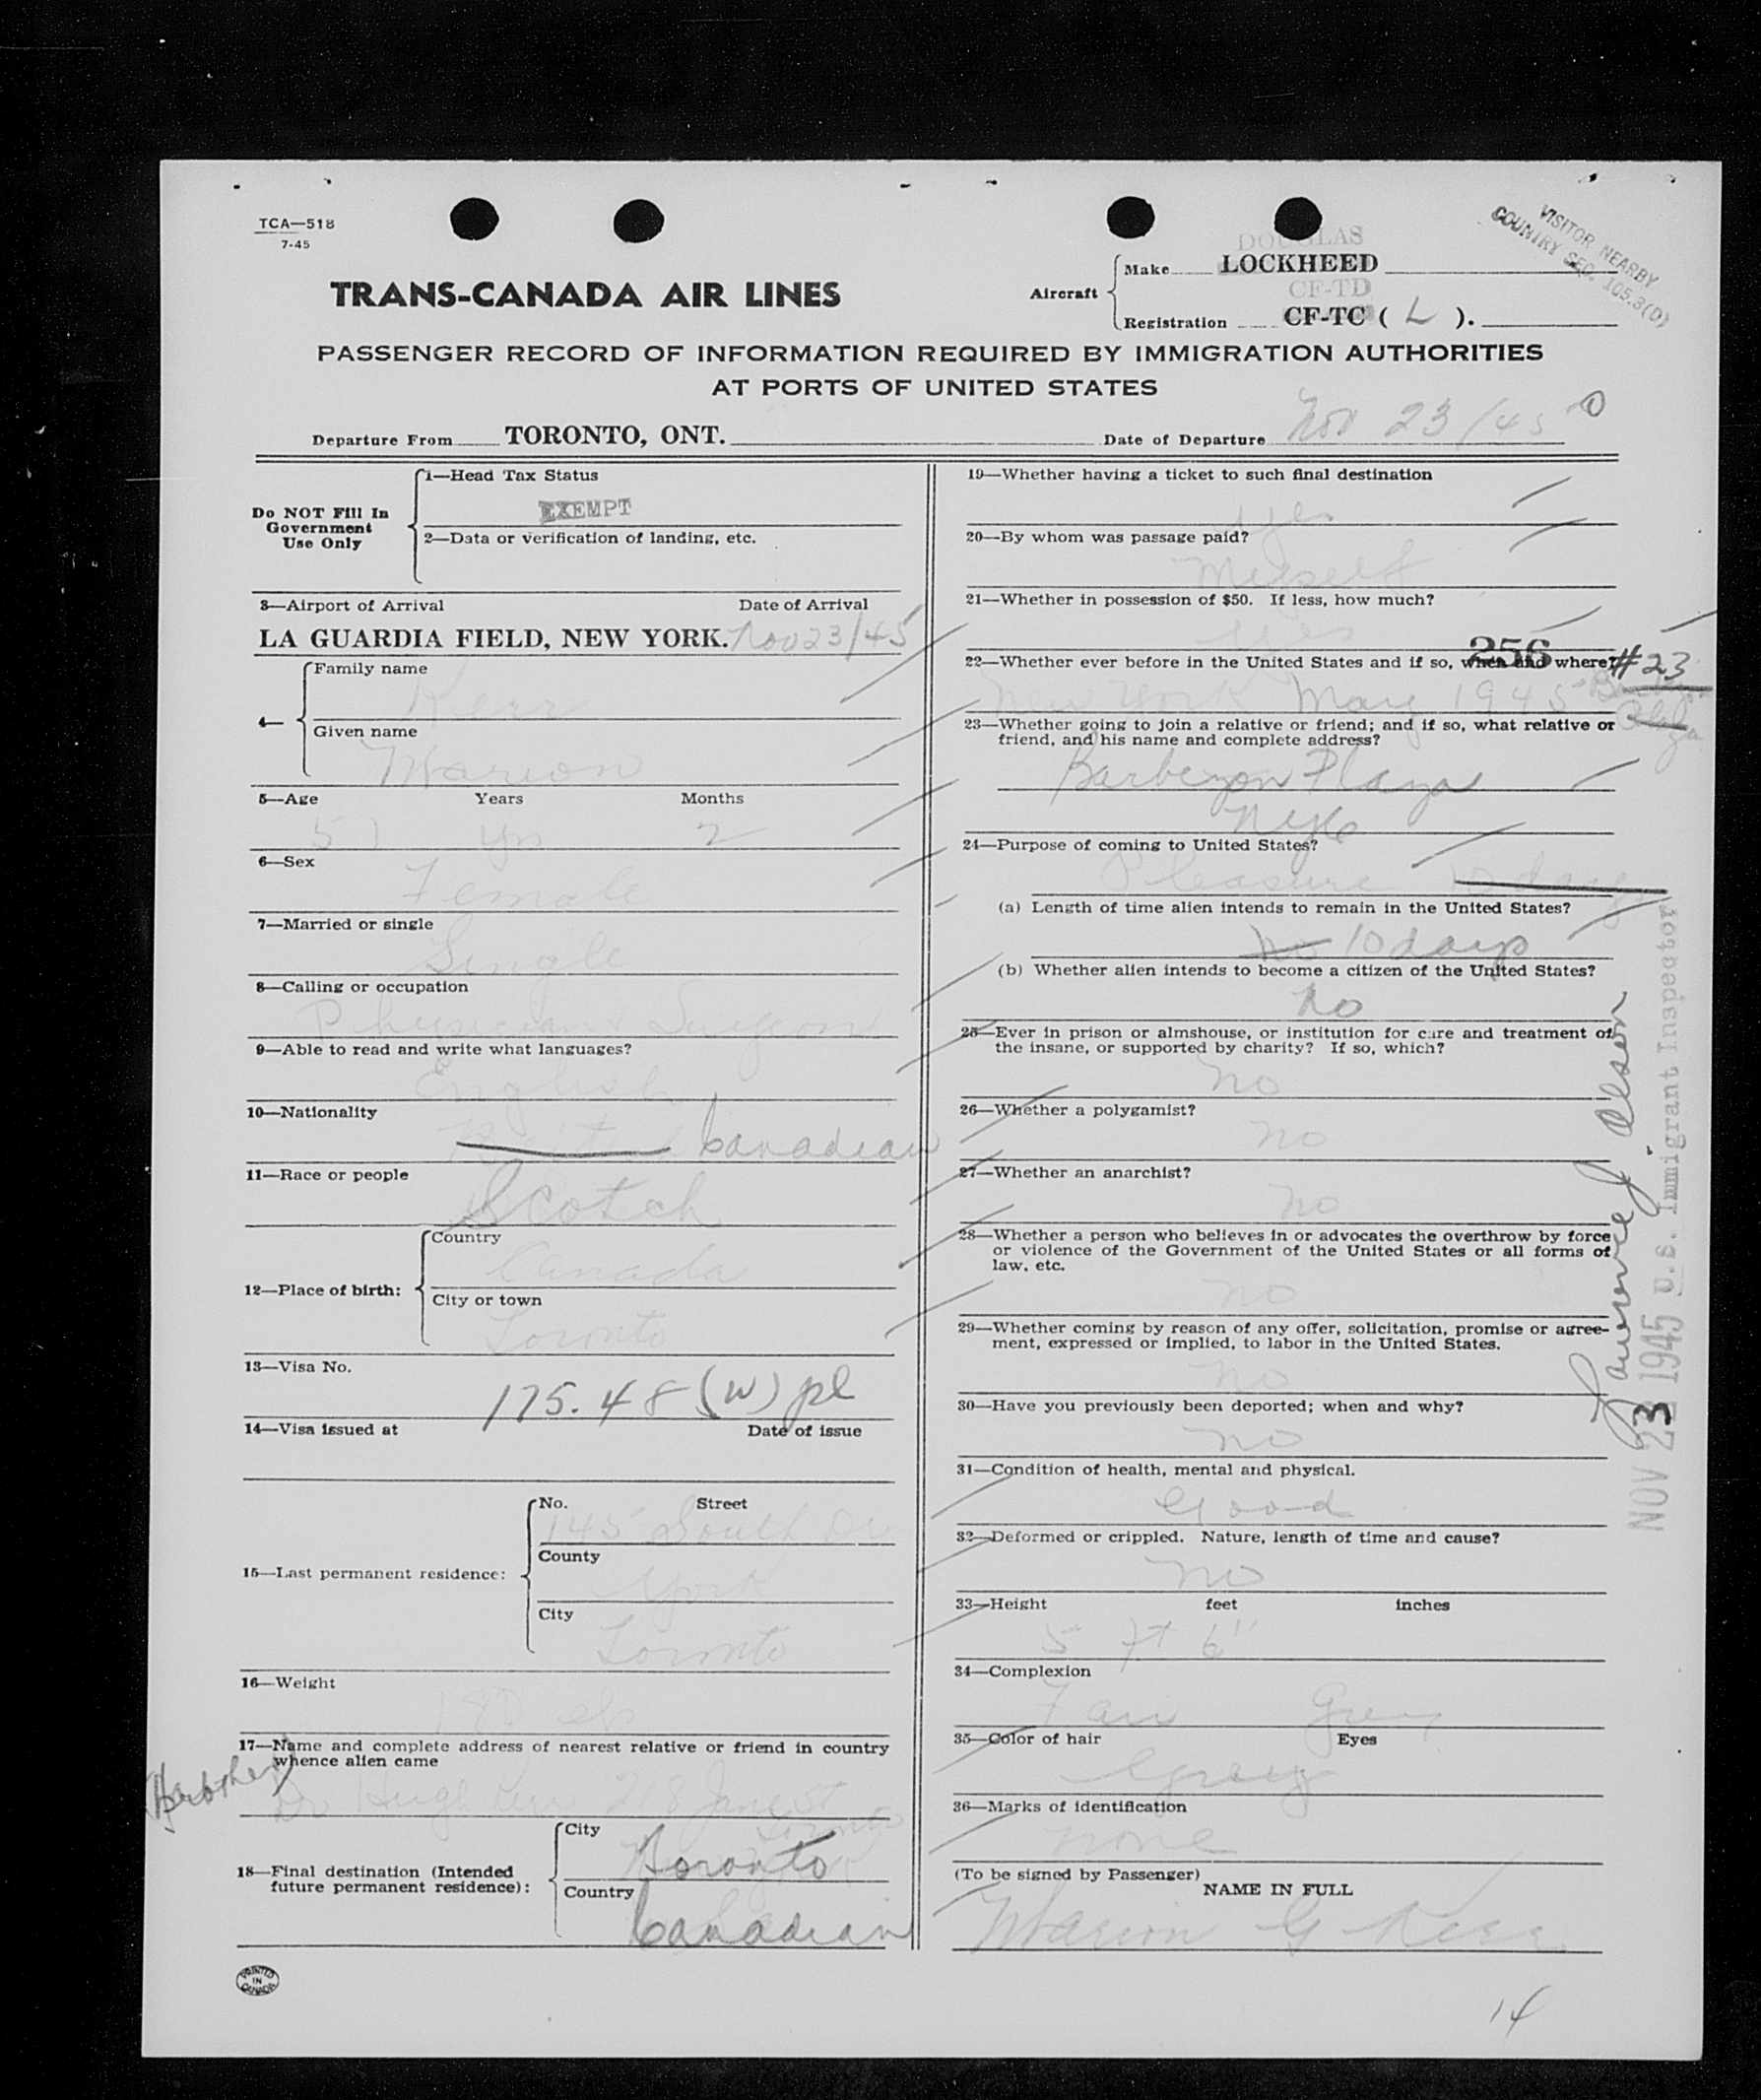 TCA—518
7-45
VISITOR NEARBY
COUNTRY SEC. 105.3(D)
TRANS-CANADA AIR LINES
DOUGLAS
Aircraft Make LOCKHEED
CF-TD
Registration CF-TC ( L ).
PASSENGER RECORD OF INFORMATION REQUIRED BY IMMIGRATION AUTHORITIES
AT PORTS OF UNITED STATES
Departure From TORONTO, ONT. Date of Departure Nov 23/45
Do NOT Fill In
Government
Use Only
1—Head Tax Status
EXEMPT
2—Data or verification of landing, etc.
3—Airport of Arrival Date of Arrival
LA GUARDIA FIELD, NEW YORK. Nov 23/45
4—
Family name
Kerr
Given name
Marion
5—Age Years Months
51 yrs 2
6—Sex
Female
7—Married or single
Single
8—Calling or occupation
Physician & Surgeon
9—Able to read and write what languages?
English
10—Nationality
Canadian
11—Race or people
Scotch
12—Place of birth:
Country
Canada
City or town
Toronto
13—Visa No.
175.48 (W) pl
14—Visa issued at Date of issue
15—Last permanent residence:
No. Street
145 South Dr
County
York
City
Toronto
16—Weight
17—Name and complete address of nearest relative or friend in country
whence alien came
(Brother)
Dr Hugh Kerr Jane St
Toronto
18—Final destination (Intended
future permanent residence):
City
Toronto
Country
Canadian
19—Whether having a ticket to such final destination
Yes
20—By whom was passage paid?
Myself
21—Whether in possession of $50. If less, how much?
Yes
256
22—Whether ever before in the United States and if so, when and where? #23
New York May 1945
23—Whether going to join a relative or friend; and if so, what relative or
friend, and his name and complete address?
Barbezon Plaza
NYC
24—Purpose of coming to United States?
Pleasure 10 days
(a) Length of time alien intends to remain in the United States?
no 10 days
(b) Whether alien intends to become a citizen of the United States?
no
25—Ever in prison or almshouse, or institution for care and treatment of
the insane, or supported by charity? If so, which?
no
26—Whether a polygamist?
no
27—Whether an anarchist?
no
28—Whether a person who believes in or advocates the overthrow by force
or violence of the Government of the United States or all forms of
law, etc.
no
29—Whether coming by reason of any offer, solicitation, promise or agree-
ment, expressed or implied, to labor in the United States.
no
30—Have you previously been deported; when and why?
no
31—Condition of health, mental and physical.
Good
32—Deformed or crippled. Nature, length of time and cause?
no
33—Height feet inches
5 ft 6"
34—Complexion
Fair Grey
35—Color of hair Eyes
Grey
36—Marks of identification
none
(To be signed by Passenger)
NAME IN FULL
Marion G Kerr
Lawrence J Olson
NOV 23 1945 U.S. Immigrant Inspector
PRINTED
IN
CANADA
14